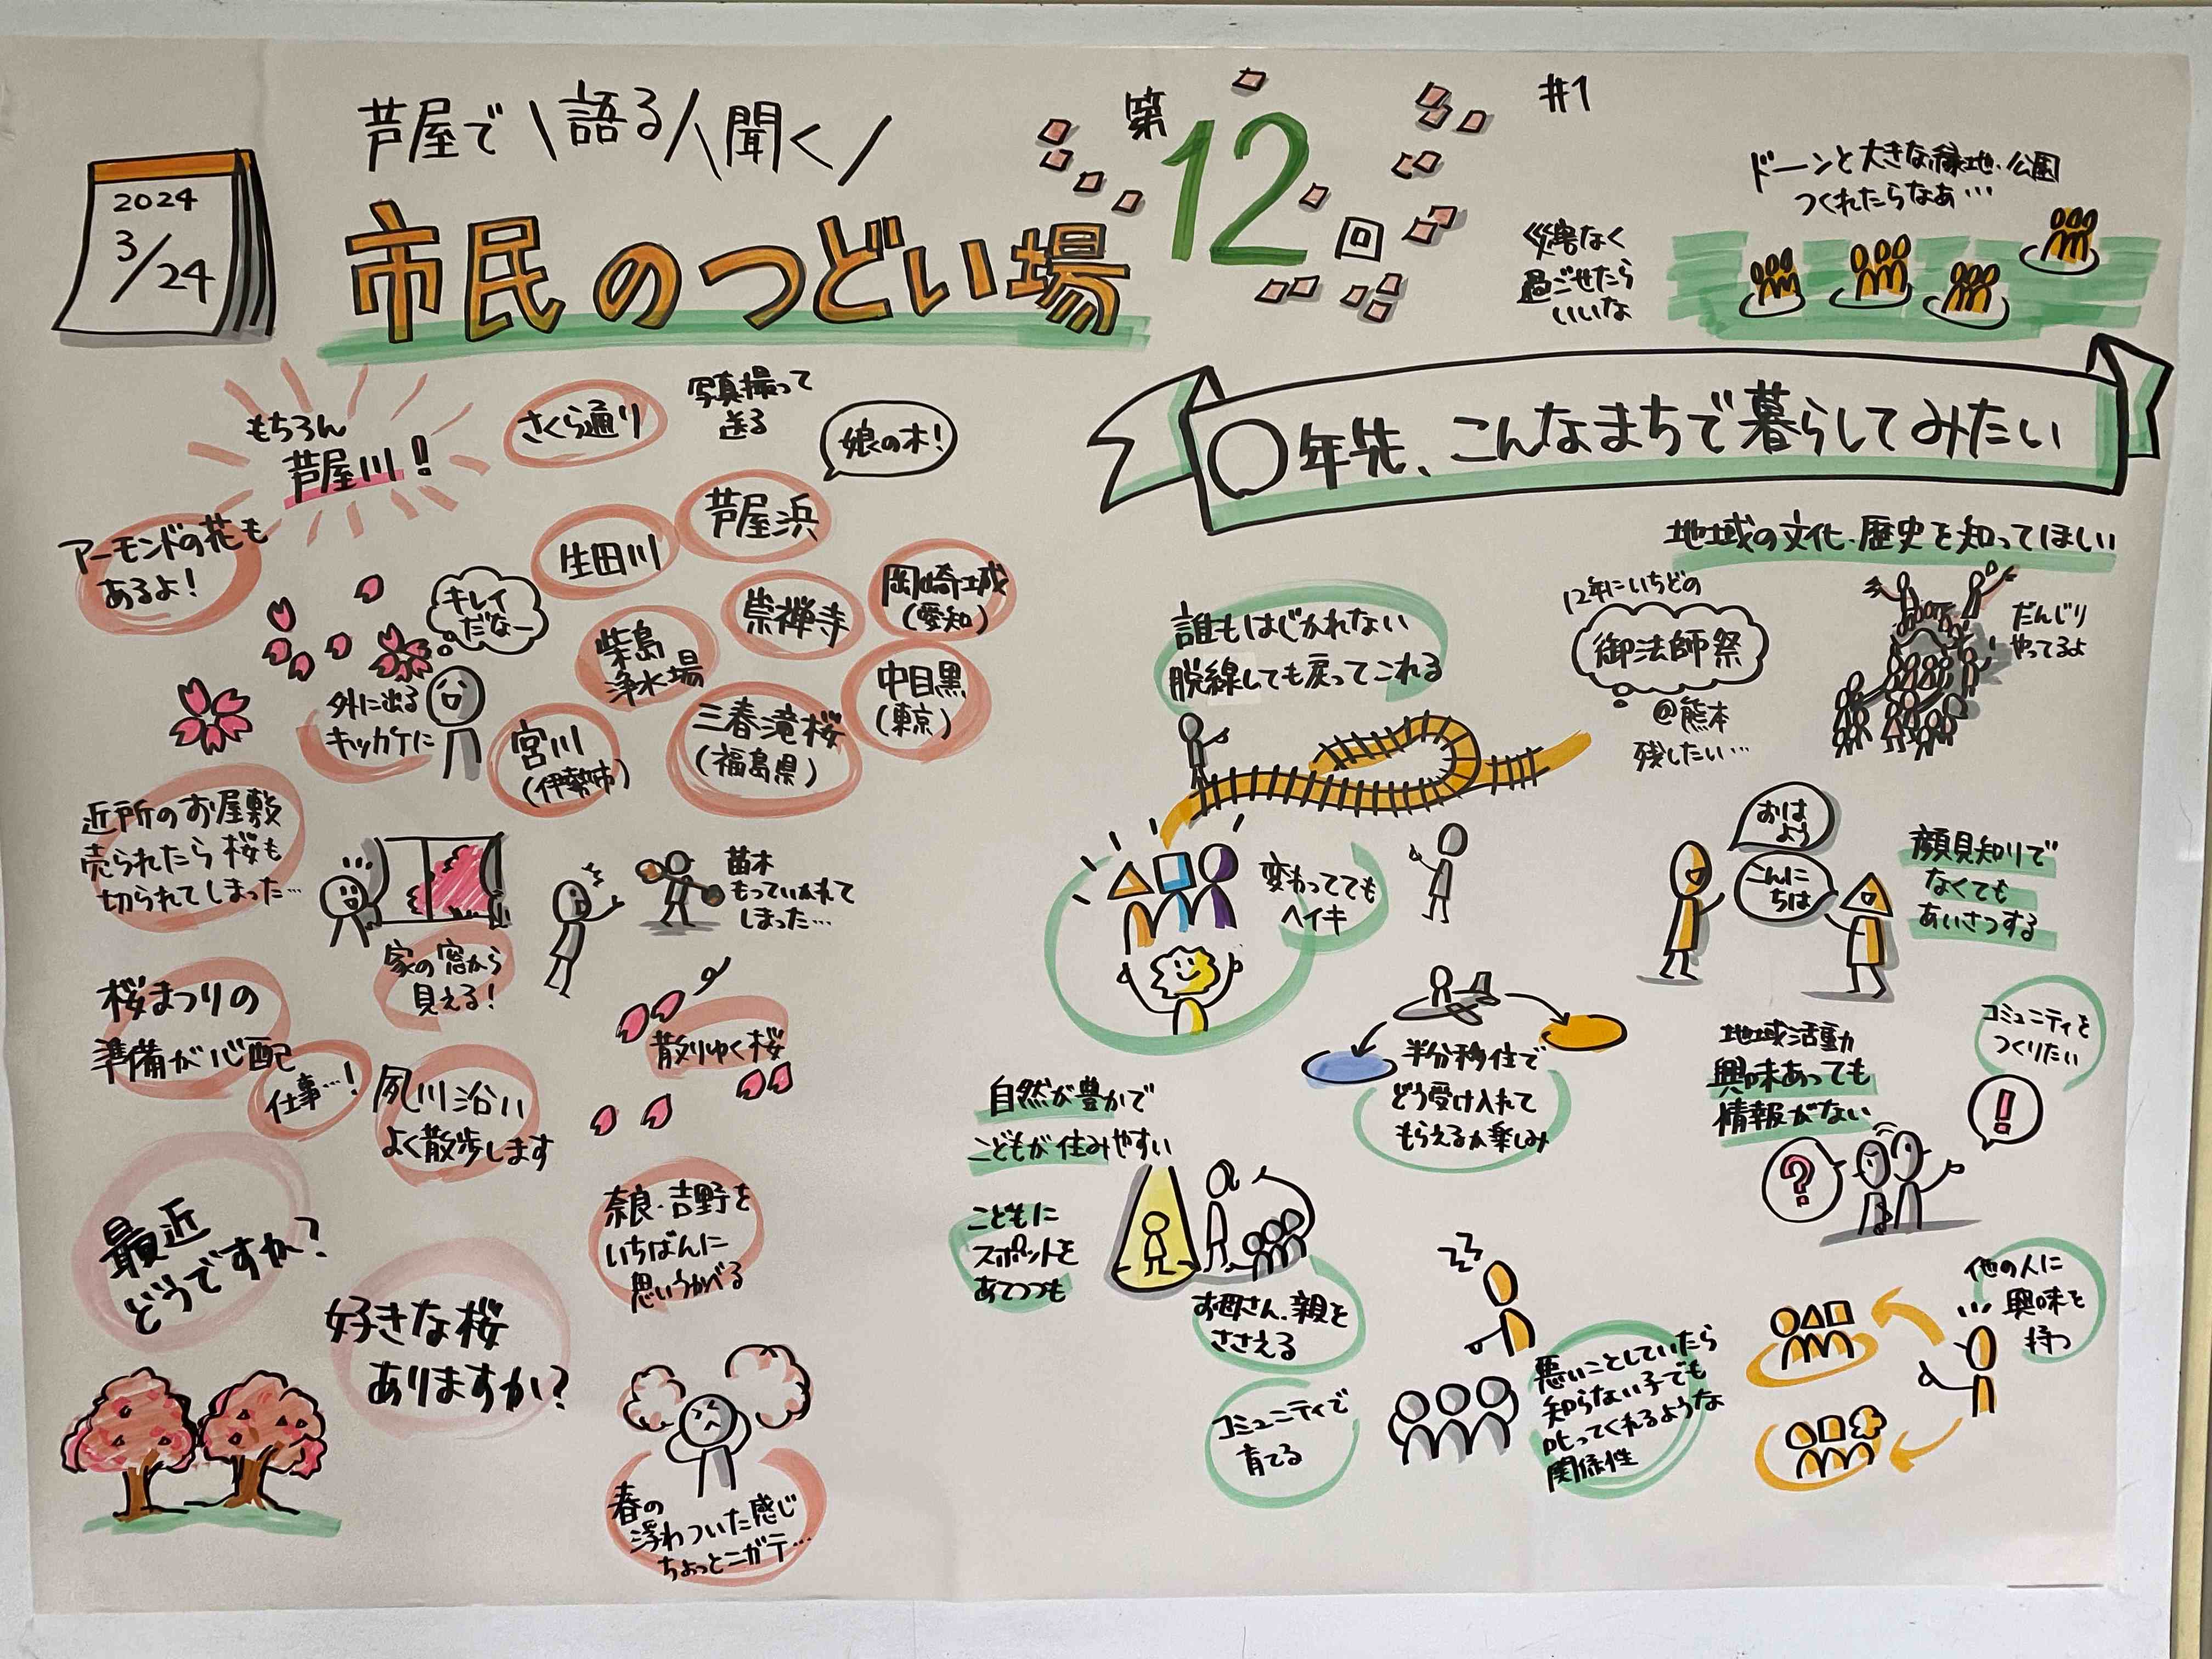 2024
3/24
芦屋で\語る/\聞く/
市民のつどい場
第12回
#1
ドーンと大きな緑地・公園
つくれたらなあ…
災害なく
過ごせたら
いいな
もちろん
芦屋川!
さくら通り
写真撮って
送る
娘の木!
アーモンドの花も
あるよ!
生田川
芦屋浜
キレイ
だなー
外に出る
キッカケに
柴島
浄水場
崇禅寺
岡崎城
(愛知)
宮川
(伊勢市)
三春滝桜
(福島県)
中目黒
(東京)
近所のお屋敷
売られたら桜も
切られてしまった…
家の窓から
見える!
苗木
もっていかれて
しまった…
桜まつりの
準備が心配
仕事…!
夙川沿い
よく散歩します
散りゆく桜
最近
どうですか?
好きな桜
ありますか?
奈良・吉野を
いちばんに
思いうかべる
春の
浮わついた感じ
ちょっとニガテ…
〇年先、こんなまちで暮らしてみたい
誰もはじかれない
脱線しても戻ってこれる
地域の文化、歴史を知ってほしい
12年にいちどの
御法師祭
@熊本
残したい…
だんじり
やってるよ
変わってても
ヘイキ
おは
よう
こんに
ちは
顔見知りで
なくても
あいさつする
半分移住で
どう受け入れて
もらえるか楽しみ
自然が豊かで
こどもが住みやすい
こどもに
スポットを
あてつつも
お母さん、親を
ささえる
コミュニティで
育てる
地域活動
興味あっても
情報がない
コミュニティを
つくりたい
!
?
zzz
悪いことしていたら
知らない子でも
叱ってくれるような
関係性
他の人に
興味を
持つ